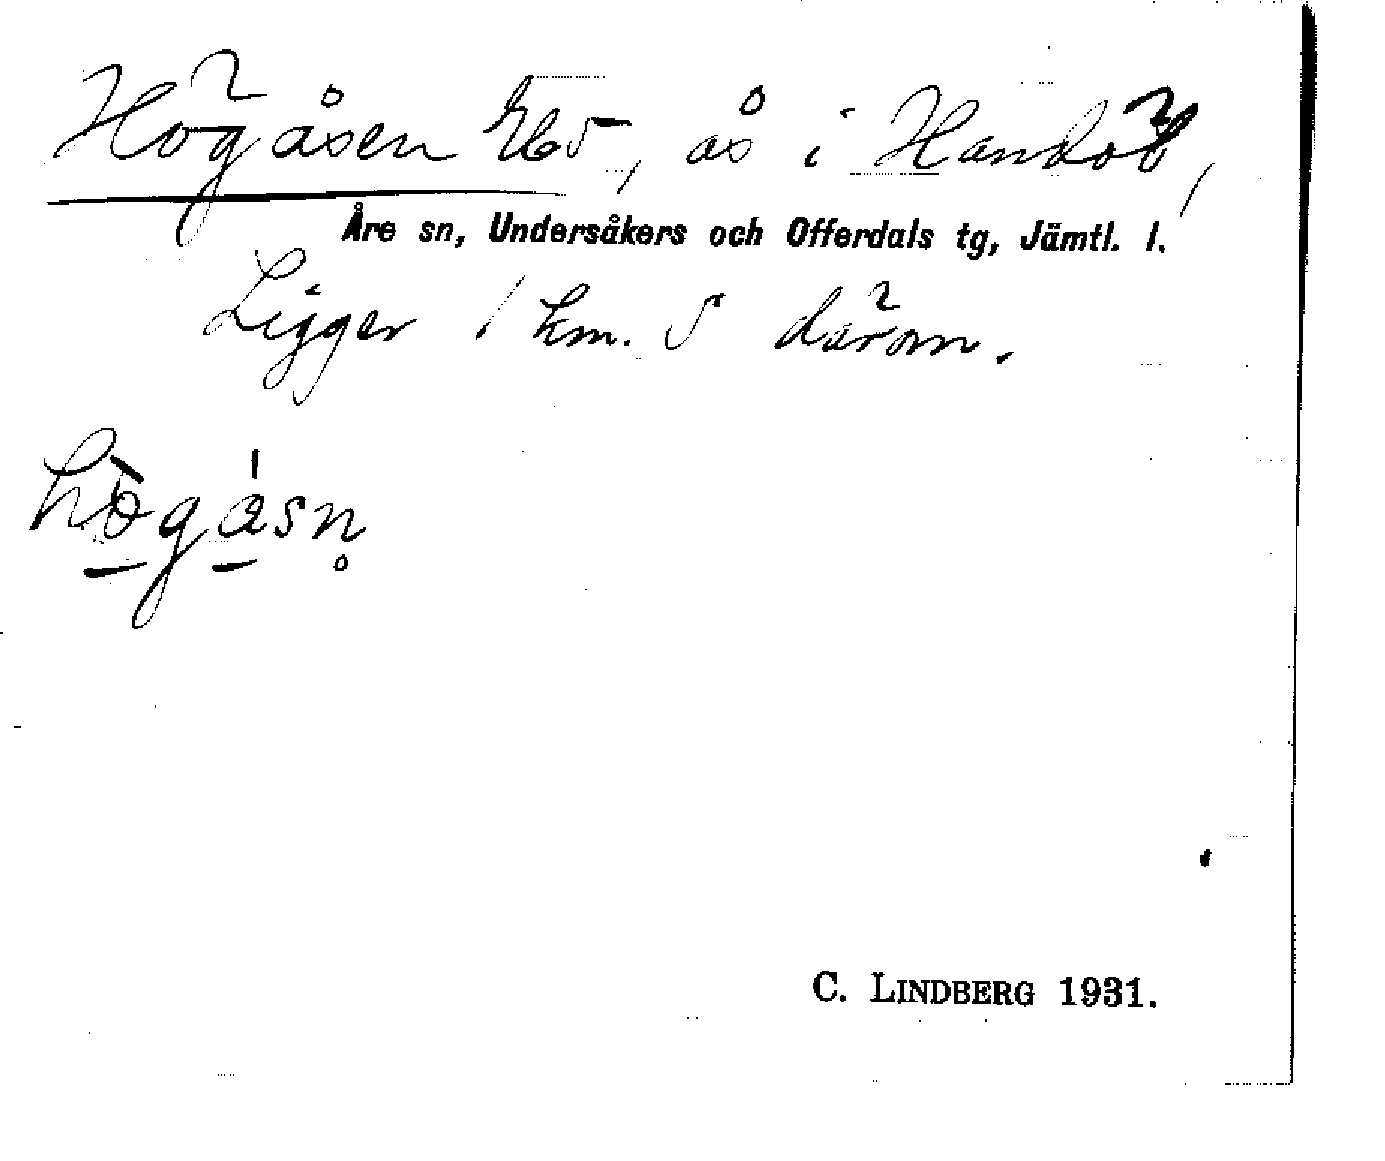 Högåsen Eko, ås i Handöl,
Åre sn, Undersåkers och Offerdals tg, Jämtl. l.
Ligger 1 km. S därom.
hògásn̥
C. LINDBERG 1931.